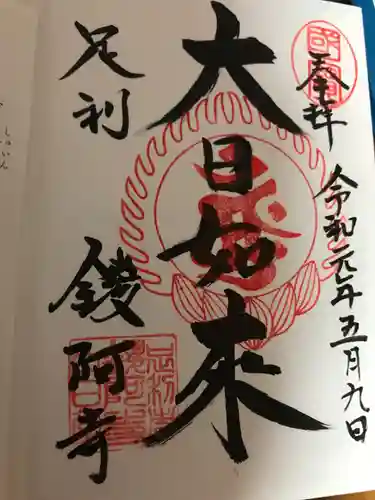 奉拝
令和元年五月九日
大日如来
足利
鑁阿寺